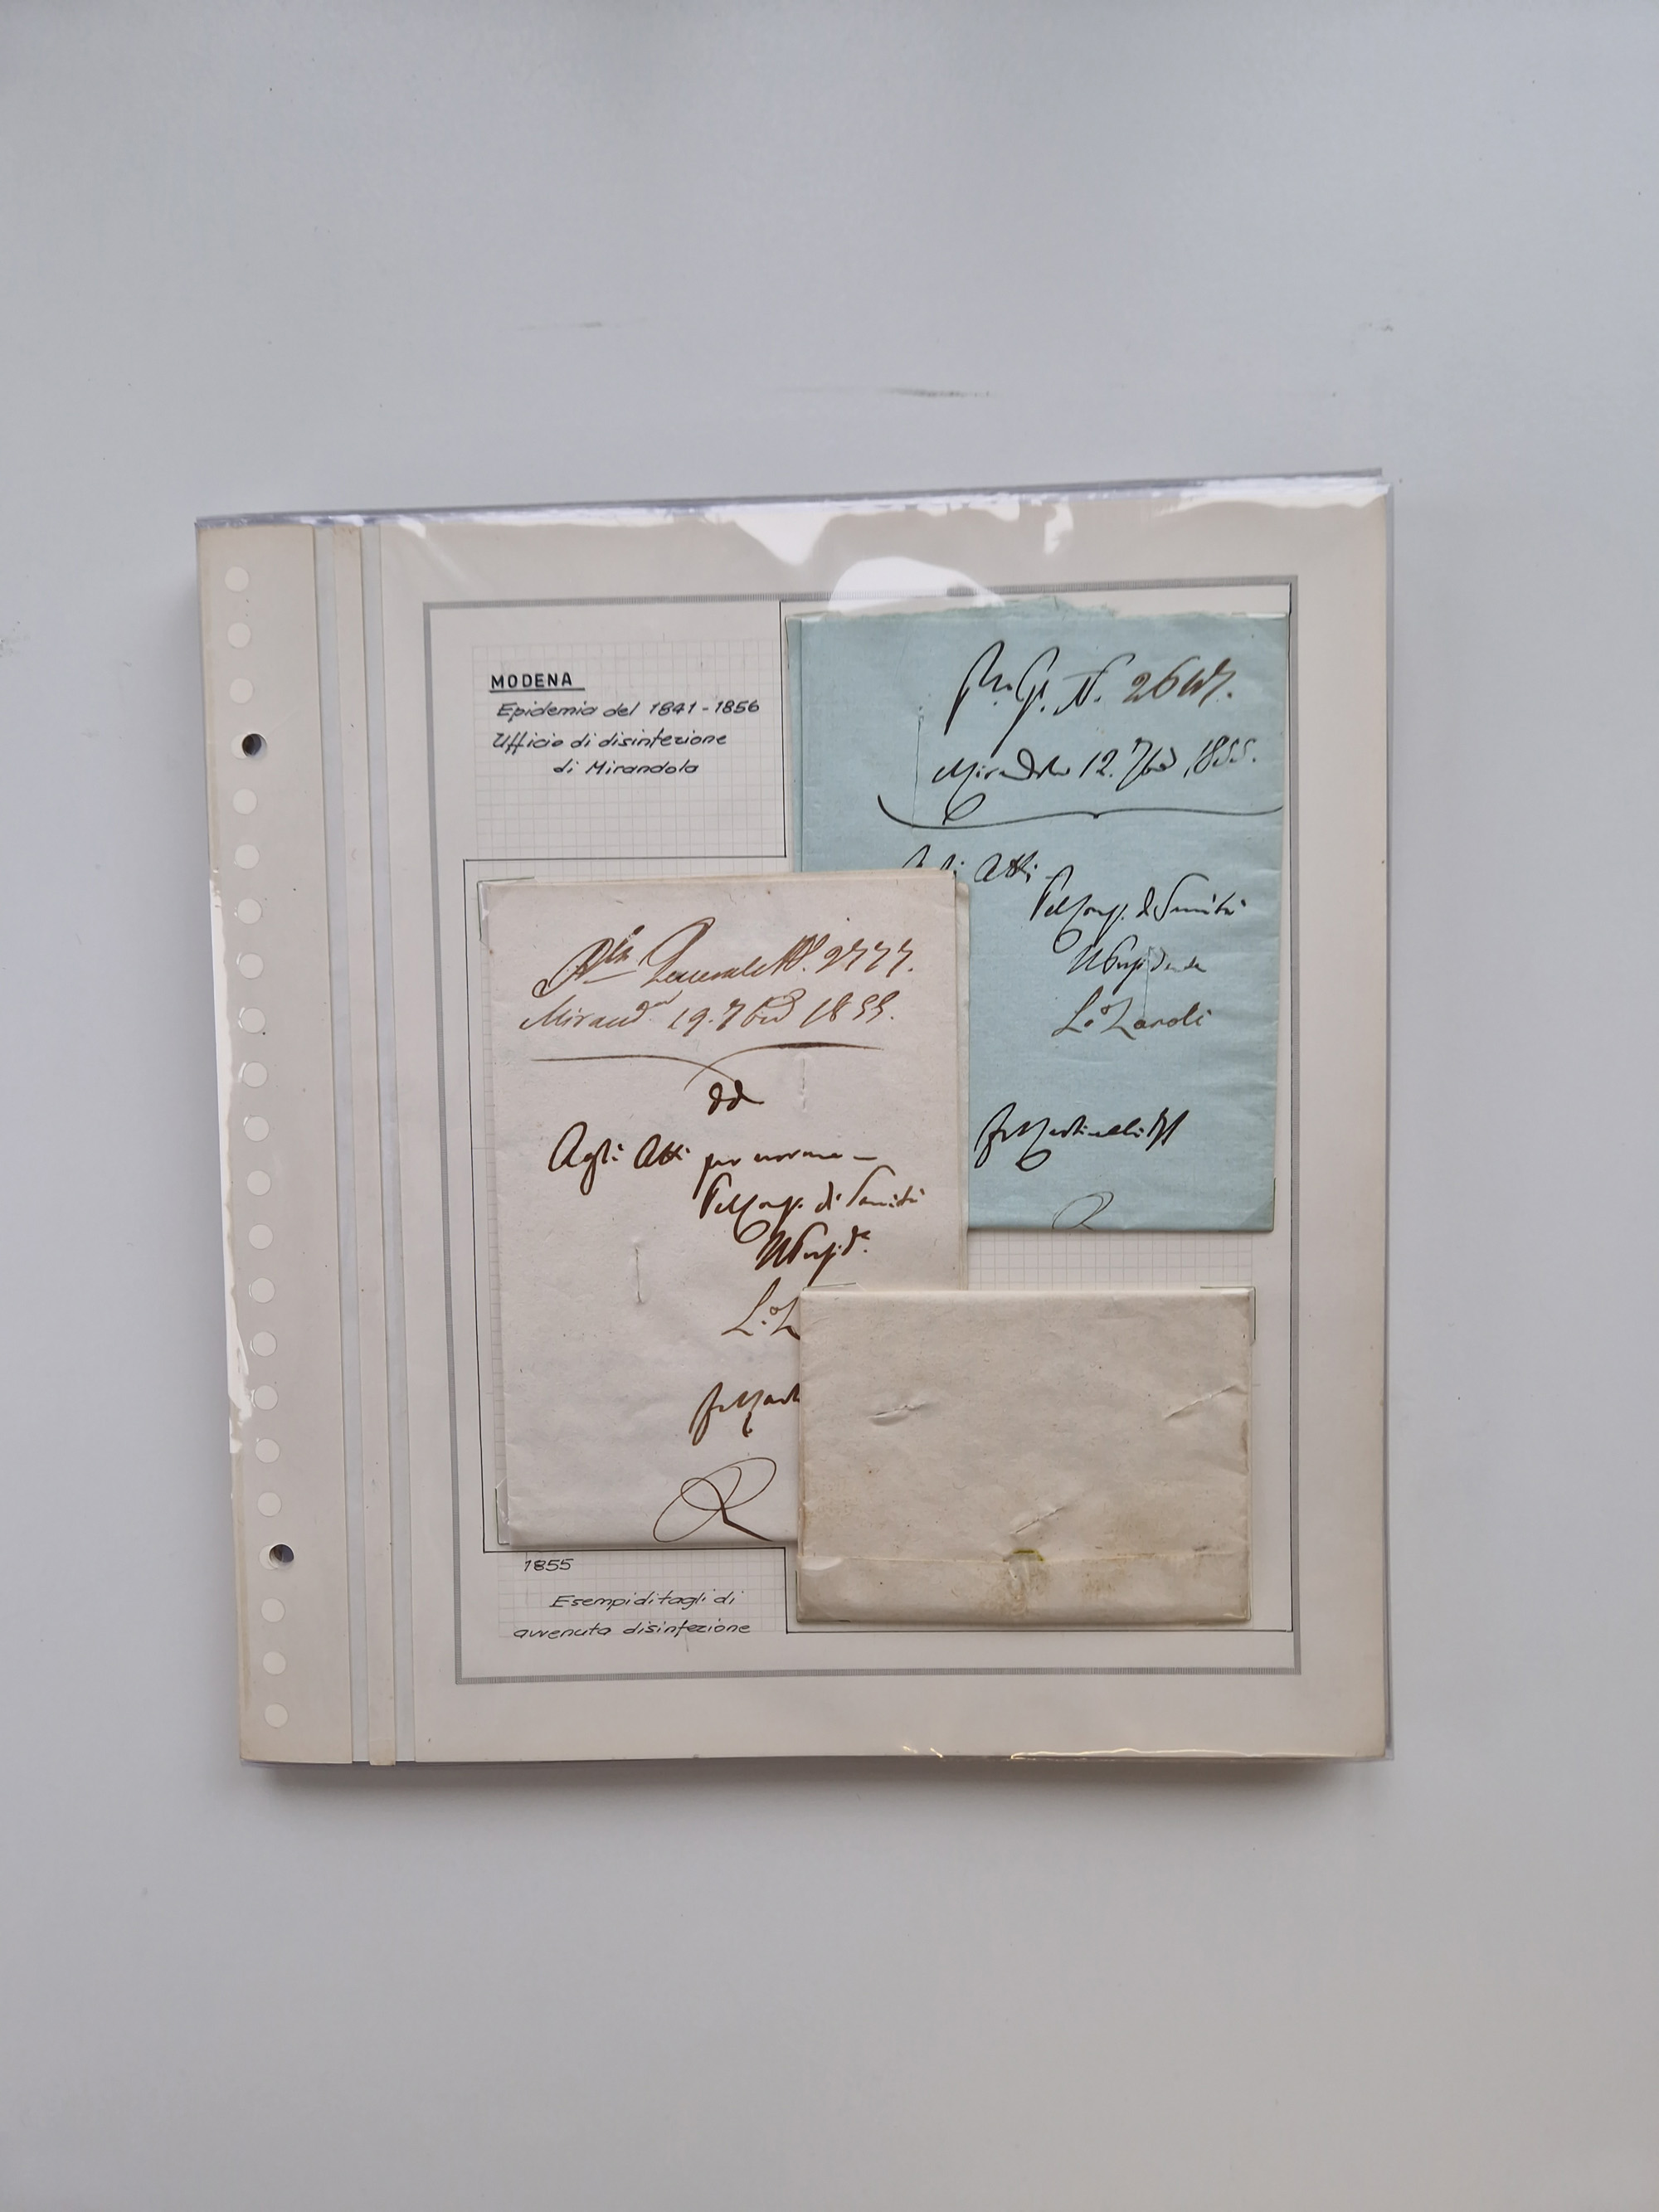 MODENA
Epidemia del 1841-1856
Ufficio di disinfezione
di Mirandola
N. 2647.
Mirandola 12. 7bre 1855.
Agli Atti -
Pel Cong. di Sanità
Il Presidente
L.o Zanoli
Generale N. 2777.
Mirand. 19. 7bre 1855.
Agli Atti per norma -
Pel Cong. di Sanità
1855
Esempi di tagli di
avvenuta disinfezione